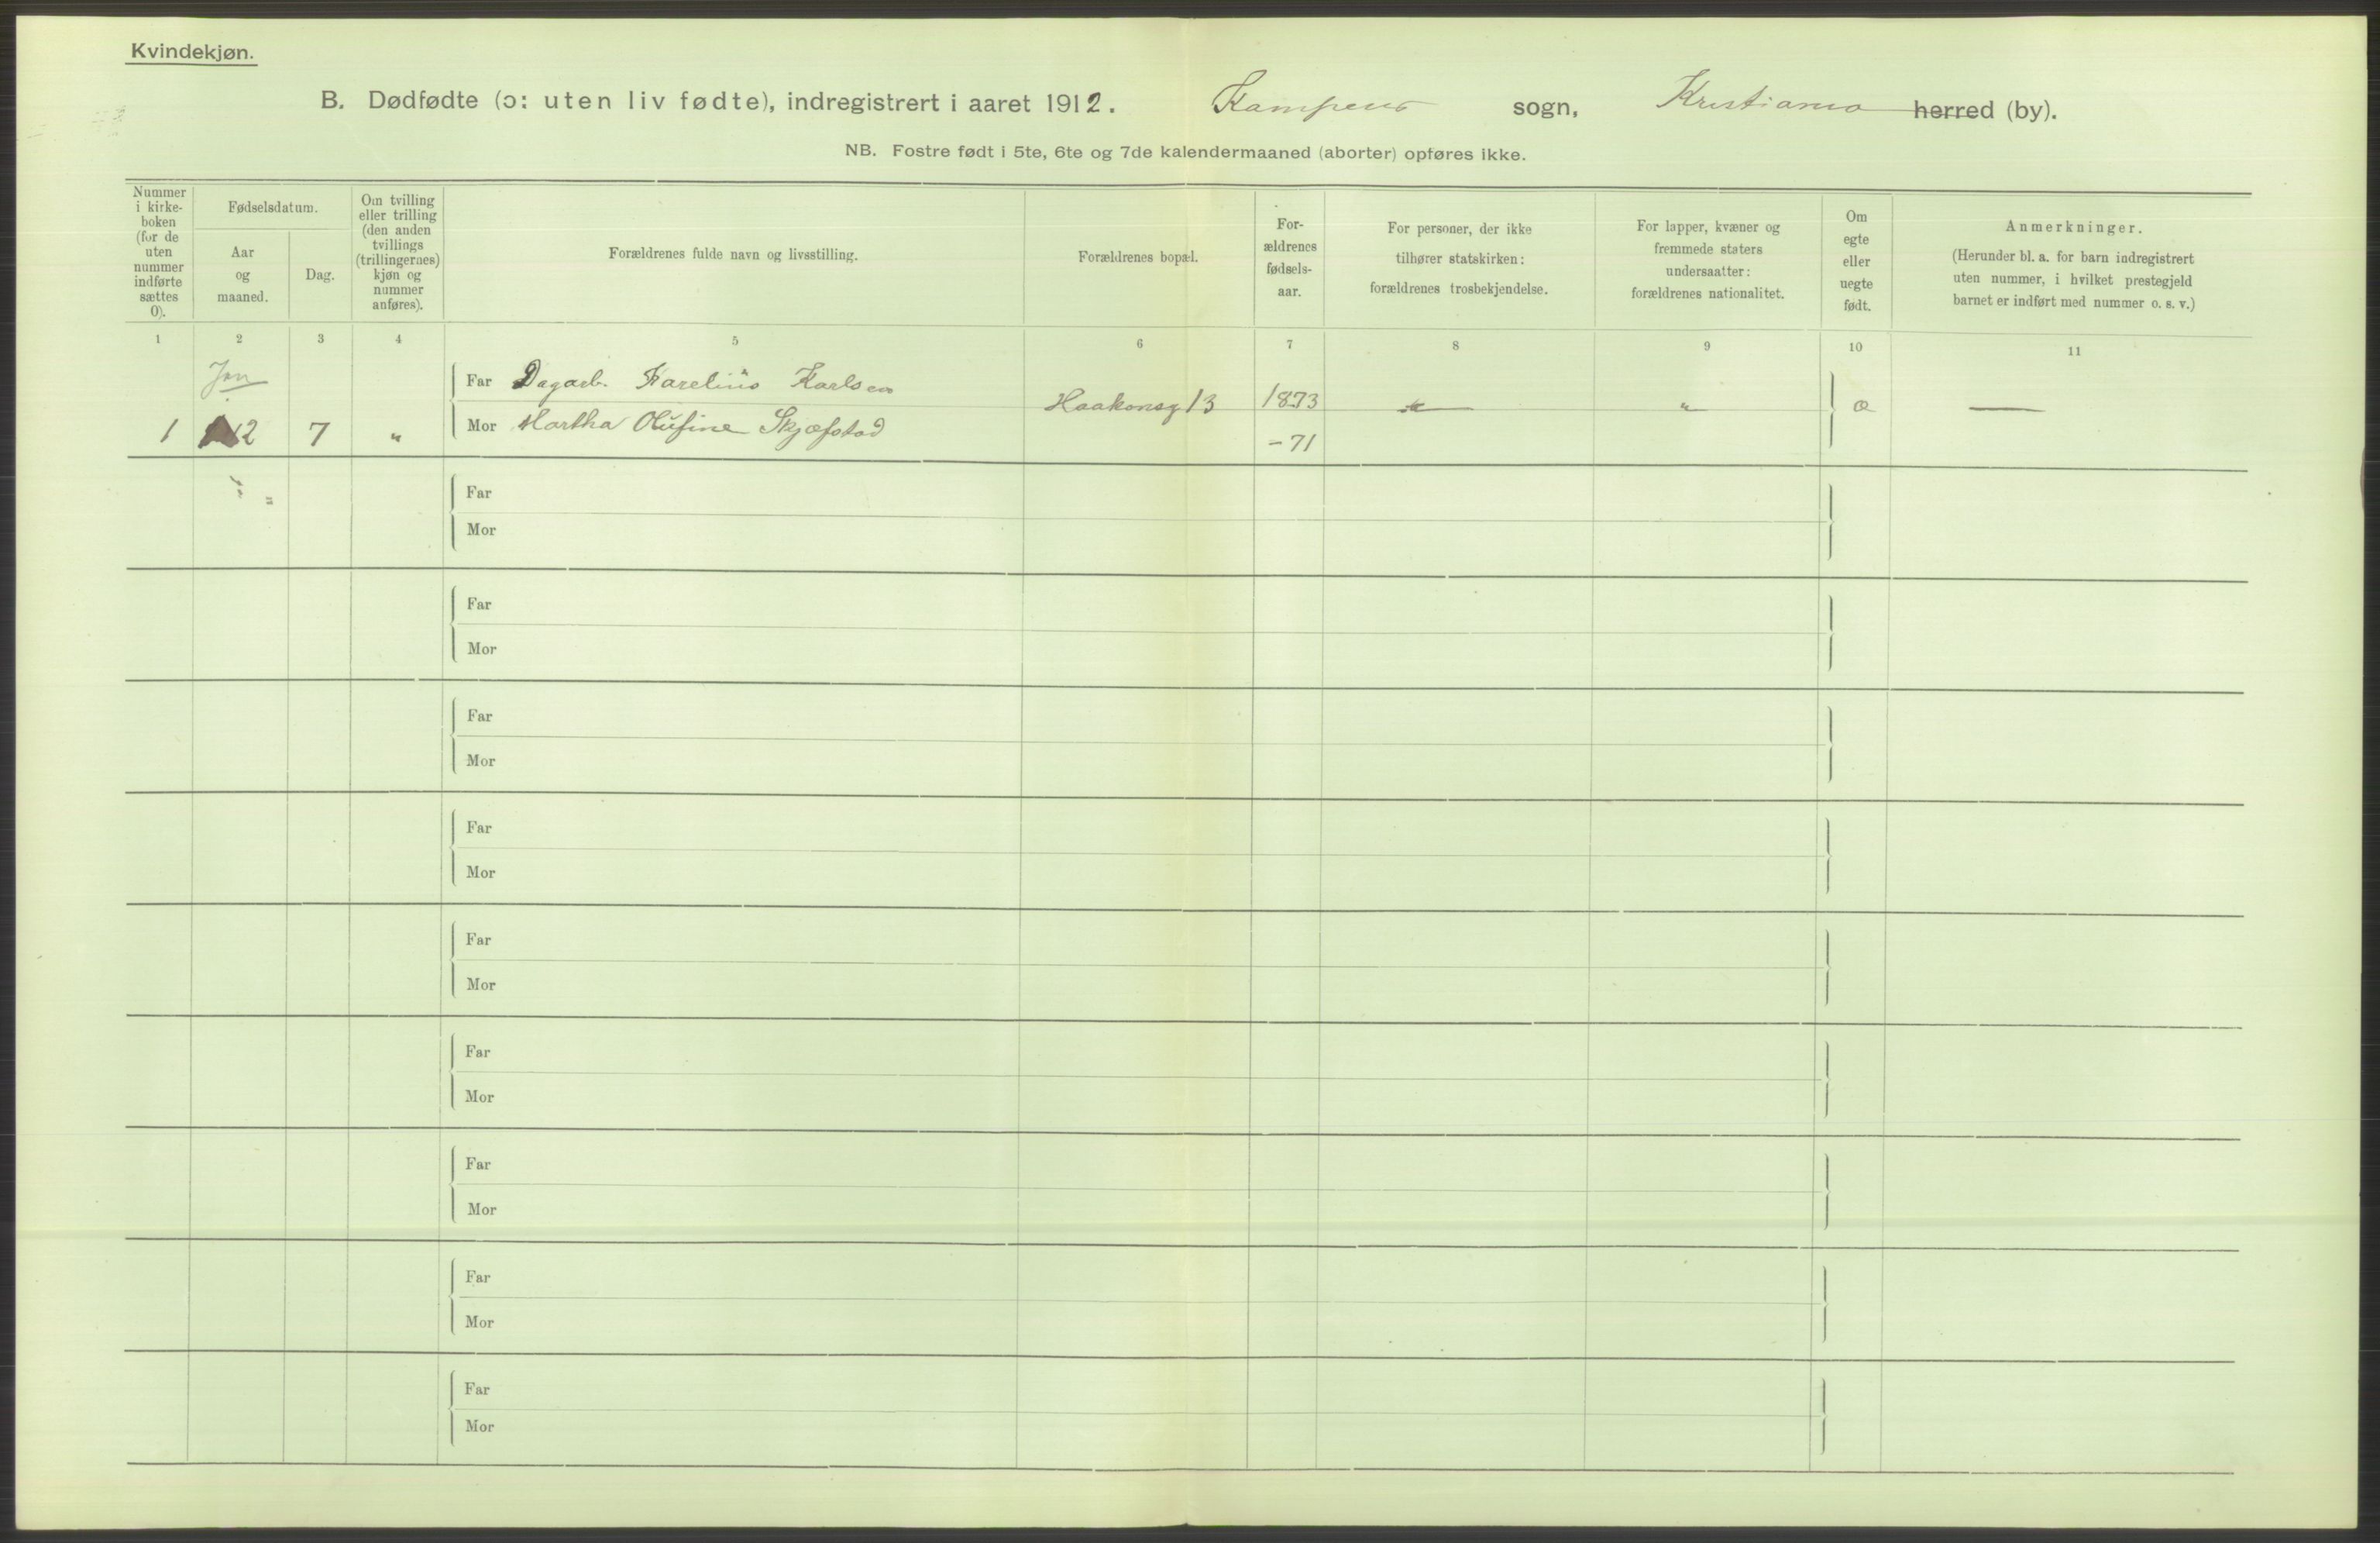 Kvindekjøn.
B. Dødfødte (ɔ: uten liv fødte), indregistrert i aaret 1912. Kampens sogn, Kristiania herred (by).
NB. Fostre født i 5te, 6te og 7de kalendermaaned (aborter) opføres ikke.
Nummer i kirke- boken (for de uten nummer indførte sættes 0).
Fødselsdatum.
Aar og maaned.
Dag.
Om tvilling eller trilling (den anden tvillings (trillingernes) kjøn og nummer anføres).
Forældrenes fulde navn og livsstilling.
Forældrenes bopæl.
For- ældrenes fødsels- aar.
For personer, der ikke tilhører statskirken: forældrenes trosbekjendelse.
For lapper, kvæner og fremmede staters undersaatter: forældrenes nationalitet.
Om egte eller uegte født.
Anmerkninger. (Herunder bl. a. for barn indregistrert uten nummer, i hvilket prestegjeld barnet er indført med nummer o. s. v.)
1 2 3 4 5 6 7 8 9 10 11
Jan
Far Dagarb. Karelius Karlsen Haakonsg 13 1873 " " — 
1 12 7 " Mor Martha Olufine Skjæfstad -71
Far
Mor
Far
Mor
Far
Mor
Far
Mor
Far
Mor
Far
Mor
Far
Mor
Far
Mor
Far
Mor